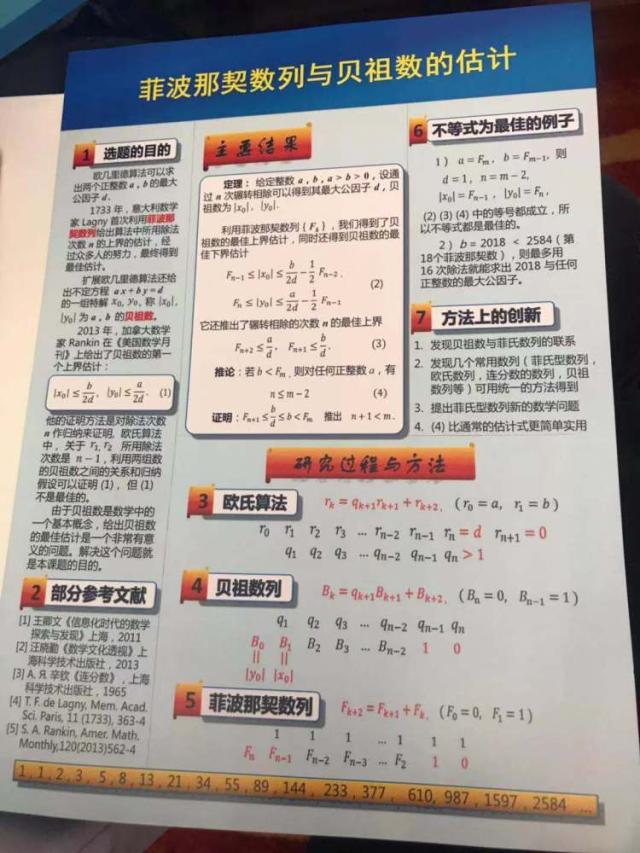 菲波那契数列与贝祖数的估计
1 选题的目的
欧几里德算法可以求
出两个正整数 a , b 的最大
公因子 d .
1733 年，意大利数学
家 Lagny 首次利用菲波那
契数列给出算法中所用除法
次数 n 的上界的估计，经
过众多人的努力，最终得到
最佳估计。
扩展欧几里德算法还给
出不定方程 ax+by=d
的一组特解 x₀, y₀, 称 |x₀|,
|y₀| 为 a , b 的贝祖数。
2013 年，加拿大数学
家 Rankin 在《美国数学月
刊》上给出了贝祖数的第一
个上界估计：
|x₀| ≤ b/2d, |y₀| ≤ a/2d. (1)
他的证明方法是对除法次数
n 作归纳来证明. 欧氏算法
中，关于 r₁, r₂ 所用除法
次数是 n − 1，利用两组数
的贝祖数之间的关系和归纳
假设可以证明 (1)，但 (1)
不是最佳的。
由于贝祖数是数学中的
一个基本概念，给出贝祖数
的最佳估计是一个非常有意
义的问题。解决这个问题就
是本课题的目的。
2 部分参考文献
[1] 王卿文《信息化时代的数学
探索与发现》上海，2011
[2] 汪晓勤《数学文化透视》上
海科学技术出版社，2013
[3] А. Я. 辛钦《连分数》，上海
科学技术出版社，1965
[4] T. F. de Lagny, Mem. Acad.
Sci. Paris, 11 (1733), 363-4
[5] S. A. Rankin, Amer. Math.
Monthly,120(2013)562-4
主要结果
定理：给定整数 a , b , a > b > 0，设通
过 n 次辗转相除可以得到其最大公因子 d，贝
祖数为 |x₀|, |y₀|.
利用菲波那契数列 { Fₛ }，我们得到了贝
祖数的最佳上界估计，同时还得到贝祖数的最
佳下界估计
Fₙ₋₁ ≤ |x₀| ≤ b/2d − 1/2 Fₙ₋₂ ,
(2)
Fₙ ≤ |y₀| ≤ a/2d − 1/2 Fₙ₋₁
它还推出了辗转相除的次数 n 的最佳上界
Fₙ₊₂ ≤ a/d, Fₙ₊₁ ≤ b/d. (3)
推论：若 b < Fₘ , 则对任何正整数 a，有
n ≤ m − 2 (4)
证明：Fₙ₊₁ ≤ b/d ≤ b < Fₘ 推出 n + 1 < m .
6 不等式为最佳的例子
1） a = Fₘ , b = Fₘ₋₁, 则
d = 1, n = m − 2,
|x₀| = Fₙ₋₁ , |y₀| = Fₙ ,
(2) (3) (4) 中的等号都成立，所
以不等式都是最佳的。
2） b = 2018 < 2584（第
18个菲波那契数），则最多用
16 次除法就能求出 2018 与任何
正整数的最大公因子。
7 方法上的创新
1. 发现贝祖数与菲氏数列的联系
2. 发现几个常用数列（菲氏型数列，
欧氏数列，连分数的数列，贝祖
数列等）可用统一的方法得到
3. 提出菲氏型数列新的数学问题
4. (4) 比通常的估计式更简单实用
研究过程与方法
3 欧氏算法 rₖ = qₖ₊₁rₖ₊₁ + rₖ₊₂,（r₀ = a, r₁ = b）
r₀ r₁ r₂ r₃ … rₙ₋₂ rₙ₋₁ rₙ = d rₙ₊₁ = 0
q₁ q₂ q₃ … qₙ₋₂ qₙ₋₁ qₙ > 1
4 贝祖数列 Bₖ = qₖ₊₁Bₖ₊₁ + Bₖ₊₂,（Bₙ = 0, Bₙ₋₁ = 1）
q₁ q₂ q₃ … qₙ₋₂ qₙ₋₁ qₙ
B₀ B₁ B₂ B₃ … Bₙ₋₂ 1 0
|| ||
|y₀| |x₀|
5 菲波那契数列 Fₖ₊₂ = Fₖ₊₁ + Fₖ,（F₀ = 0, F₁ = 1）
1 1 1 … 1 1 1
Fₙ Fₙ₋₁ Fₙ₋₂ Fₙ₋₃ … F₂ 1 0
1 , 1 , 2 , 3 , 5 , 8 , 13 , 21 , 34 , 55 , 89 , 144 , 233 , 377 , 610, 987 , 1597 , 2584 …